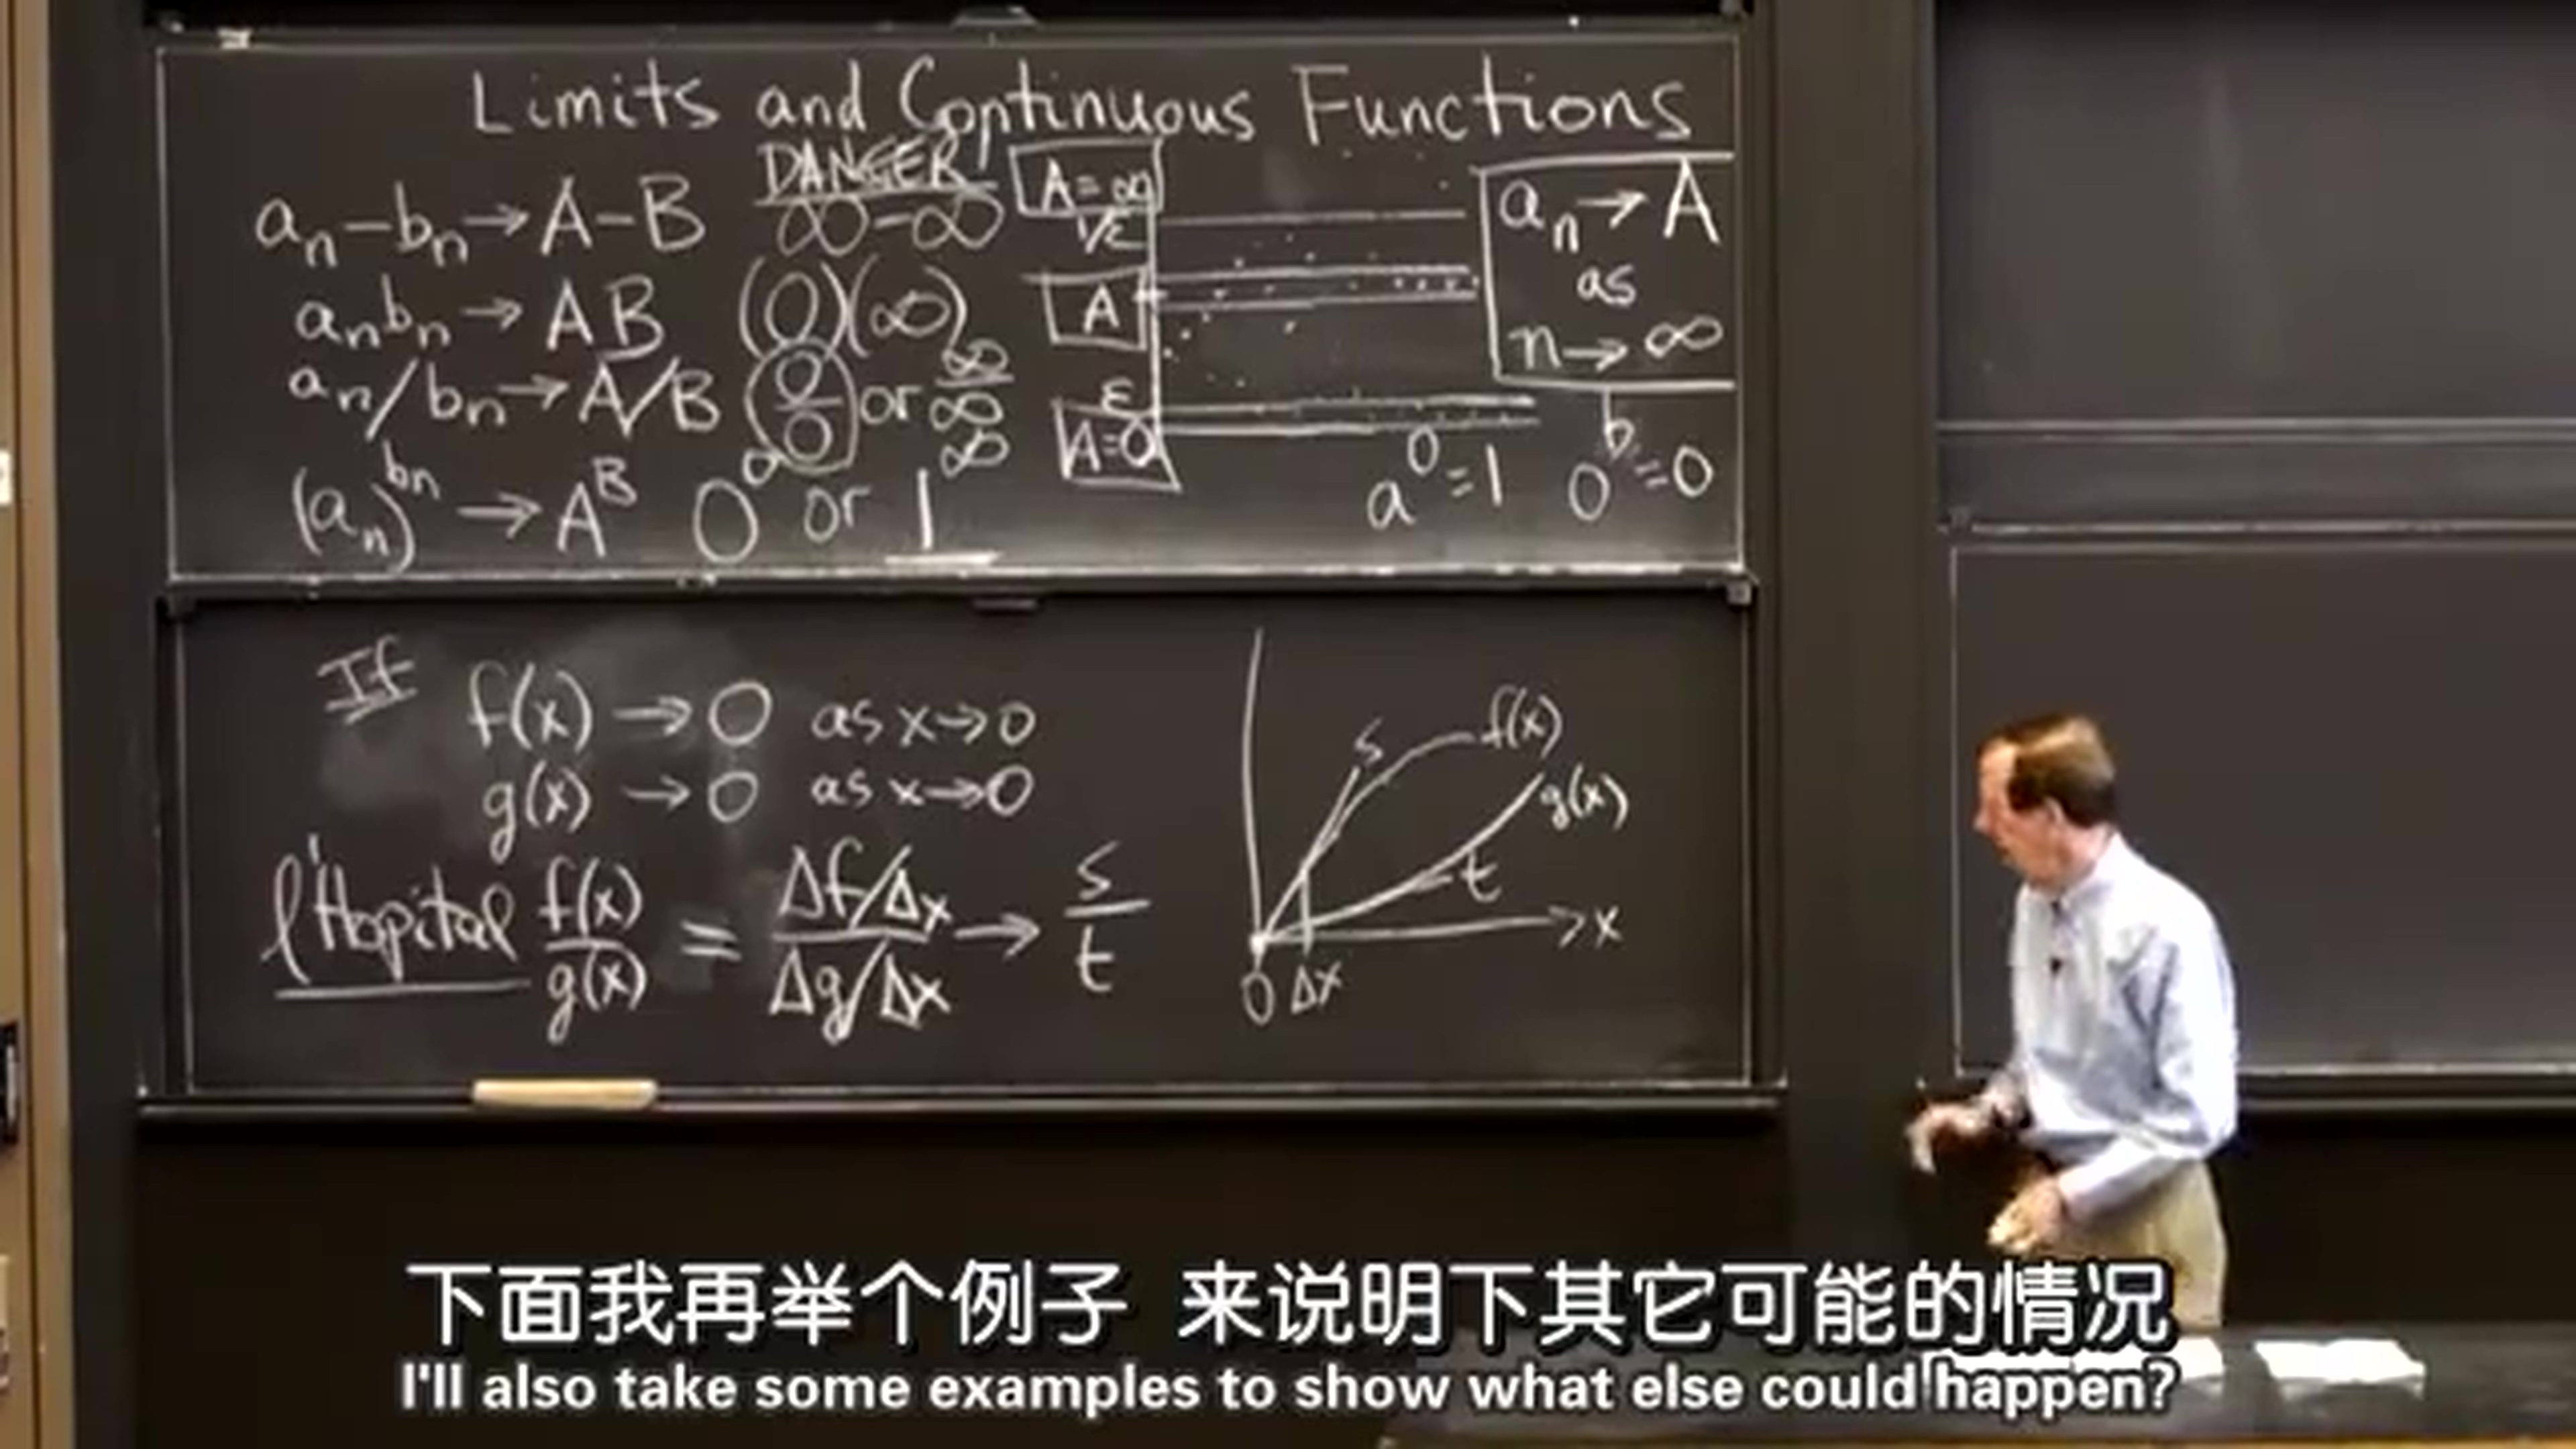 Limits and Continuous Functions
DANGER!
aₙ-bₙ→A-B ∞-∞
aₙbₙ→AB (0)(∞)
aₙ/bₙ→A/B 0/0 or ∞/∞
(aₙ)^bₙ→A^B 0^0 or 1^∞
A=∞
1/ε
A
ε
A=0
aₙ→A
as
n→∞
a^0=1 0^b=0
If f(x)→0 as x→0
g(x)→0 as x→0
l'Hopital f(x)/g(x) = Δf/Δx / Δg/Δx → s/t
s f(x)
g(x)
t
x
0 Δx
下面我再举个例子 来说明下其它可能的情况
I'll also take some examples to show what else could happen?